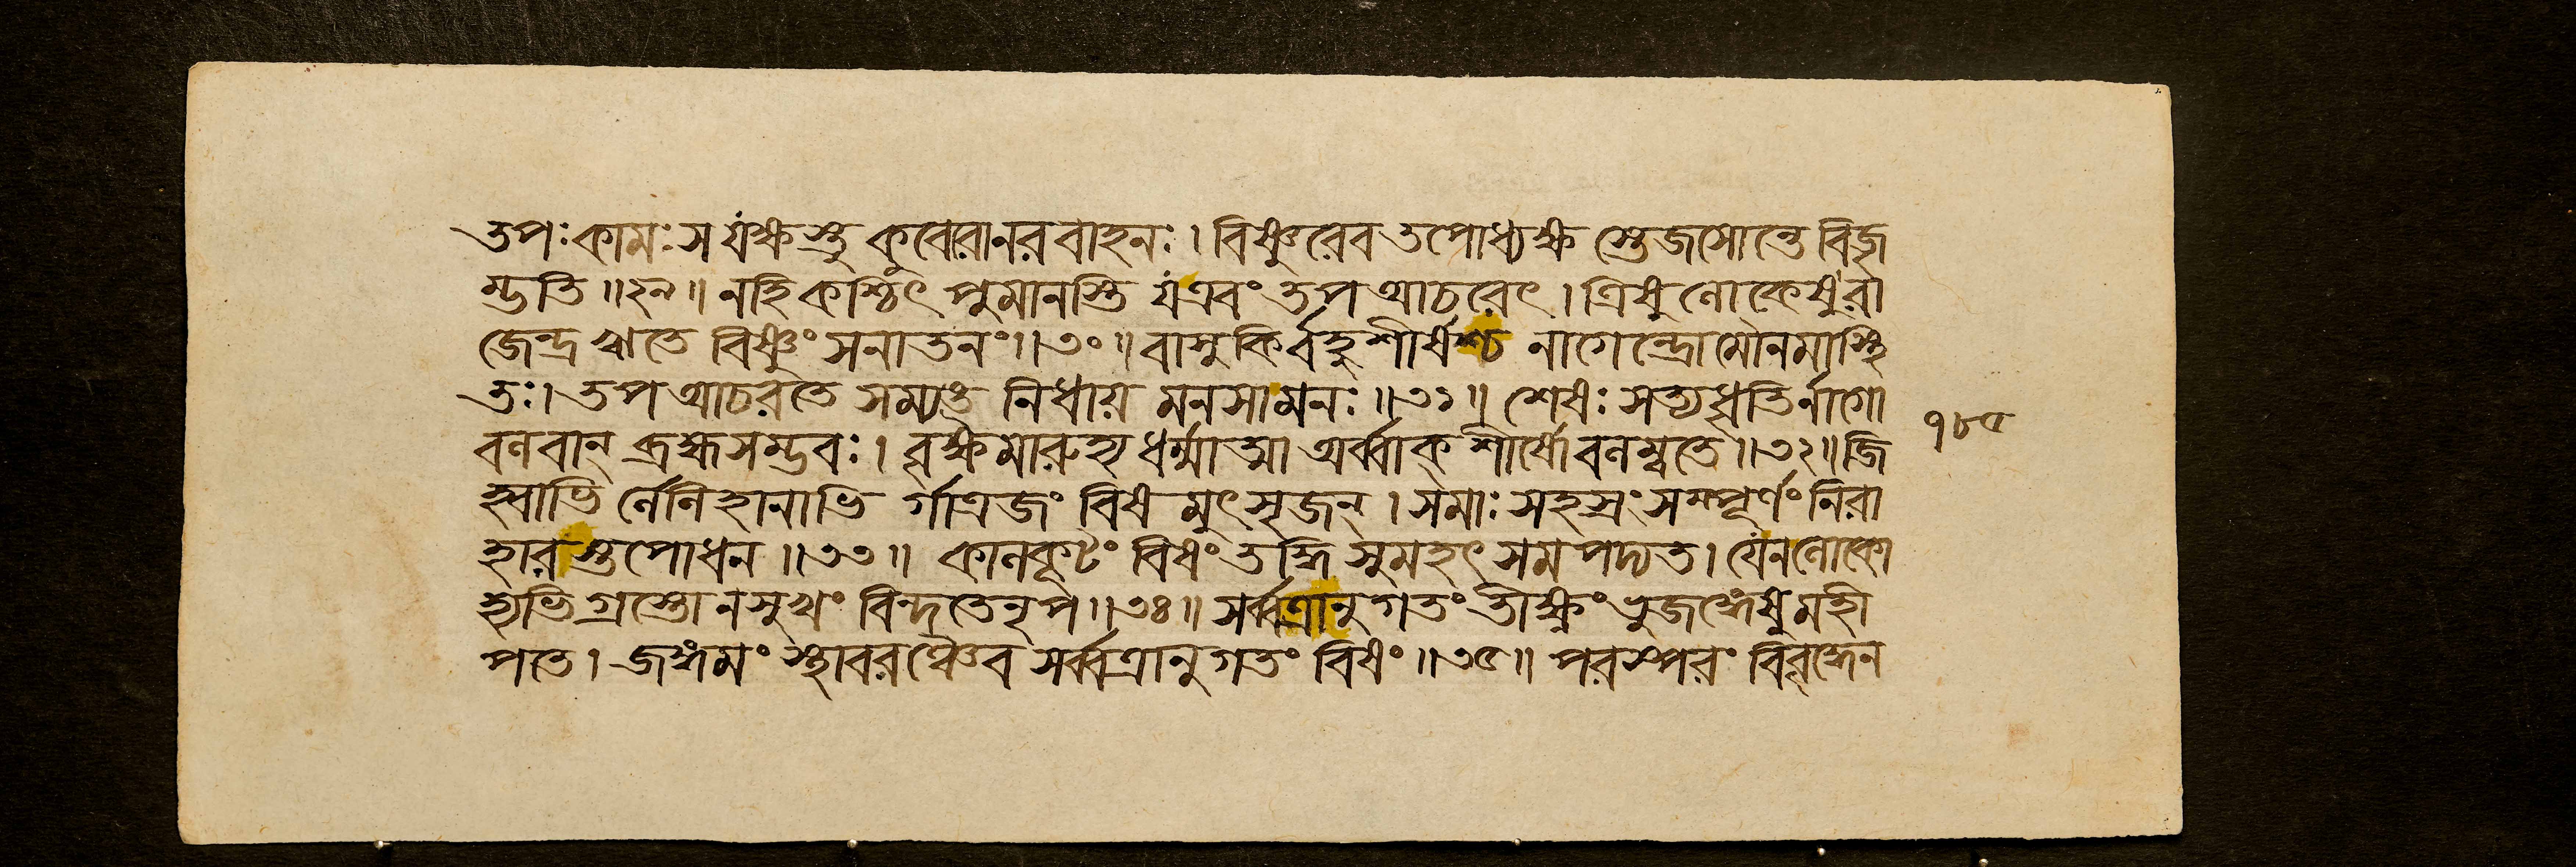 তপঃকামঃসযক্ষস্তু কুবেরোনরবাহনঃ। বিষ্ণুরেব তপোধ্যক্ষ স্তেজসোন্তে বিজৃ
ম্ভতি॥২৯॥ নহি কশ্চিৎ পুমানস্তি যএবং তপ আচরেৎ। ত্রিষু লোকেষু রা
জেন্দ্র ঋতে বিষ্ণুং সনাতনং॥৩০॥ বাসুকির্বহুশীর্ষশ্চ নাগেন্দ্রোমৌনমাস্থি
তঃ। তপ আচরতে সম্যঙ নিধায় মনসামনঃ॥৩১॥ শেষঃ সত্যধৃতির্নাগো
বলবান্ ব্রহ্মসম্ভবঃ। বৃক্ষমারুহ্য ধর্ম্মাত্মা অর্ব্বাক্ শীর্ষোবলম্বতে॥৩২॥ জি
হ্বাভি র্লেলিহানাভি র্গাত্রজং বিষমুৎসৃজন্। সমাঃ সহস্রং সম্পূর্ণং নিরা
হারস্তপোধন॥৩৩॥ কালকূটং বিষং তদ্ধি সুমহৎ সমপদ্যত। যেনলোকো
হ্যভিগ্রস্তো নসুখং বিন্দতেনৃপ॥৩৪॥ সর্ব্বত্রানুগতং তীক্ষ্ণং ভুজঙ্গেষু মহী
পতে। জঙ্গমং স্থাবরঞ্চৈব সর্ব্বত্রানুগতং বিষং॥৩৫॥ পরস্পরং বিবৃদ্ধেন
১৮৫